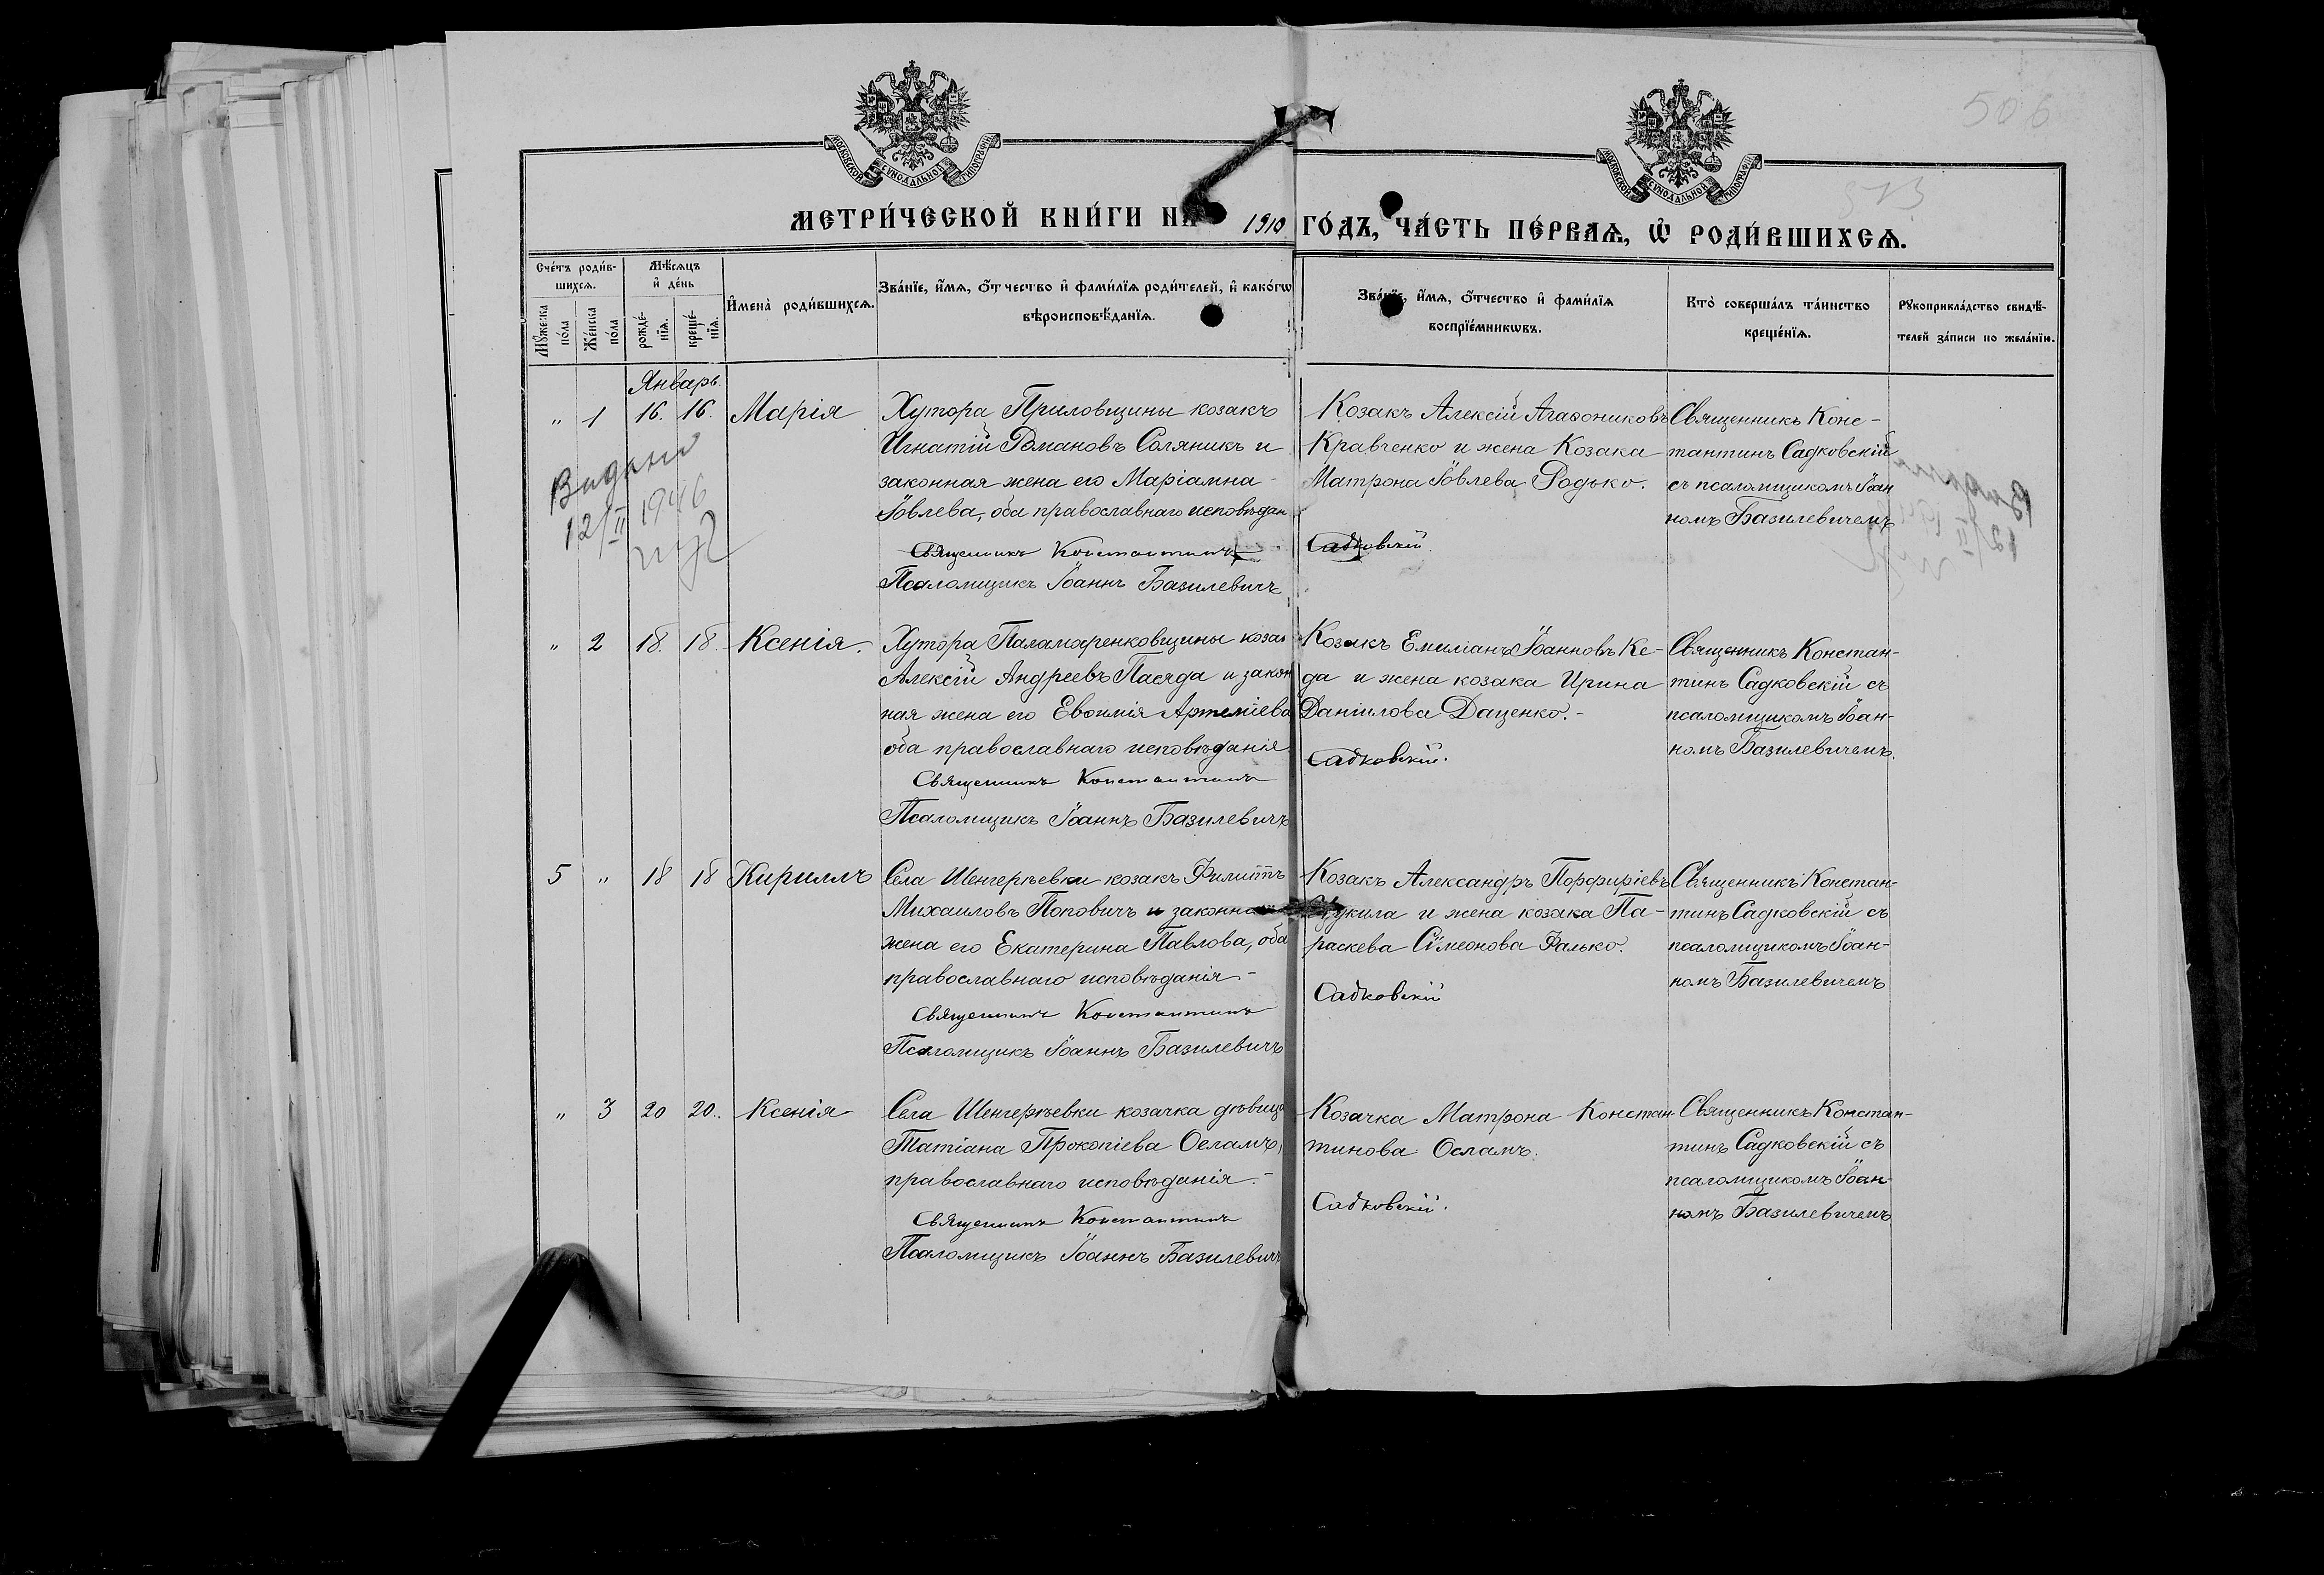 506
513
МОСКОВСКОЙ СѴНОДАЛЬНОЙ ТИПОГРАФІИ
МОСКОВСКОЙ СѴНОДАЛЬНОЙ ТИПОГРАФІИ
МЕТРИ́ЧЕСКОЙ КНИ́ГИ НА 1910 ГО́ДЪ, ЧА́СТЬ ПЕ́РВАѦ, Ѽ РОДИ́ВШИХСѦ.
Сче́тъ роди́в-
шихсѧ.
Мꙋ́жеска
по́ла
Же́нска
по́ла
Мѣ́сѧцъ
и҆ де́нь
рожде́-
нїѧ.
креще́-
нїѧ.
И҆мена̀ роди́вшихсѧ.
Зва́нїе, и҆́мѧ, ѻ҆́тчество и҆ фами́лїѧ роди́телей, и҆ како́гѡ
вѣроисповѣ́данїѧ.
Зва́нїе, и҆́мѧ, ѻ҆́тчество и҆ фами́лїѧ
воспрїе́мникѡвъ.
Кто̀ соверша́лъ та́инство
креще́нїѧ.
Рꙋкоприкла́дство свидѣ́-
телей за́писи по жела́нїю.
Январь.
" 1 16. 16. Марія
Хутора Приловщины козакъ
Игнатій Романовъ Соляникъ и
законная жена его Маріамна
Іовлева, оба православнаго исповѣдан
Священникъ Константинъ
Псаломщикъ Іоаннъ Базилевичъ
Козакъ Алексій Агаѳониковъ
Кравченко и жена Козака
Матрона Іовлева Родько.
Садковскій.
Священникъ Конс-
тантинъ Садковскій
съ псаломщикомъ Іоан
номъ Базилевичемъ
Видано
12/II 1946
" 2 18. 18. Ксенія.
Хутора Паламаренковщины козак
Алексій Андреевъ Пасяда и закон
ная жена его Евѳимія Артеміева
оба православнаго исповѣданія
Священникъ Константинъ
Псаломщикъ Іоаннъ Базилевичъ
Козакъ Емиліанъ Іоанновъ Ке-
да и жена козака Ирина
Даніилова Даценко.-
Садковскій.
Священникъ Констан-
тинъ Садковскій съ
псаломщикомъ Іоан-
номъ Базилевичемъ.
5 " 18 18 Кириллъ
Села Шенгерѣевки козакъ Филиппъ
Михаиловъ Поповичъ и законная
жена его Екатерина Павлова, оба
православнаго исповѣданія.-
Священникъ Константинъ
Псаломщикъ Іоаннъ Базилевичъ
Козакъ Александръ Порфиріевъ
и жена козака Па-
раскева Сѵмеонова Фалько.
Садковскій
Священникъ Констан-
тинъ Садковскій съ
псаломщикомъ Іоан-
номъ Базилевичемъ
" 3 20 20. Ксенія
Села Шенгерѣевки козачка дѣвица
Татіана Прокопіева Осламъ,
православнаго исповѣданія.-
Священникъ Константинъ
Псаломщикъ Іоаннъ Базилевичъ
Козачка Матрона Констан-
тинова Осламъ.
Садковскій.
Священникъ Констан-
тинъ Садковскій съ
псаломщикомъ Іоан-
номъ Базилевичемъ